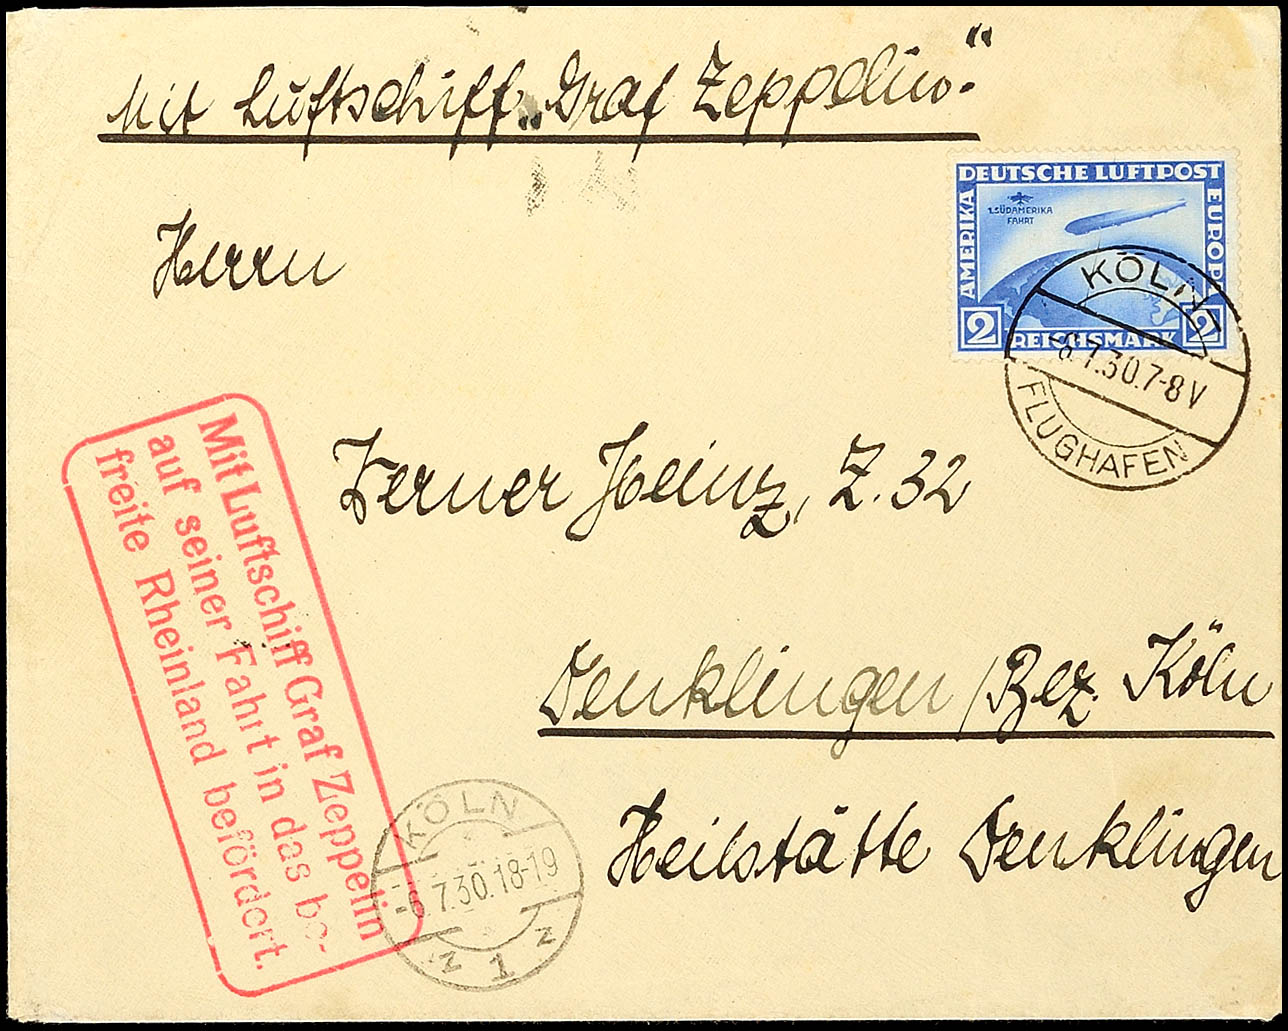 Mit Luftschiff „Graf Zeppelin.“
DEUTSCHE LUFTPOST
AMERIKA
EUROPA
1.SÜDAMERIKA
FAHRT
2 REICHSMARK 2
KÖLN 1
-6.7.30.7-8V
FLUGHAFEN
Herrn
Werner Heinz, Z. 32
Denklingen / Bez. Köln
Heilstätte Denklingen
Mit Luftschiff Graf Zeppelin
auf seiner Fahrt in das be-
freite Rheinland befördert.
KÖLN
-6.7.30.18-19
z 1 z